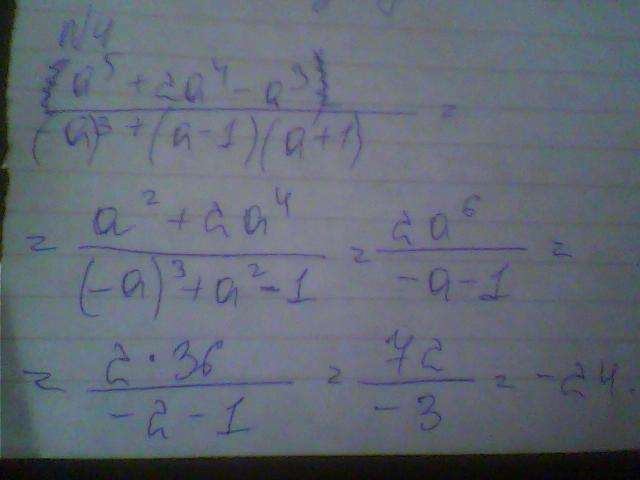 N4
a⁵ + 2a⁴ - a³
(-a)³ + (a-1)(a+1) =
= a² + 2a⁴ / (-a)³ + a² - 1 = 2a⁶ / -a - 1 =
= 2·36 / -2 - 1 = 72 / -3 = -24.